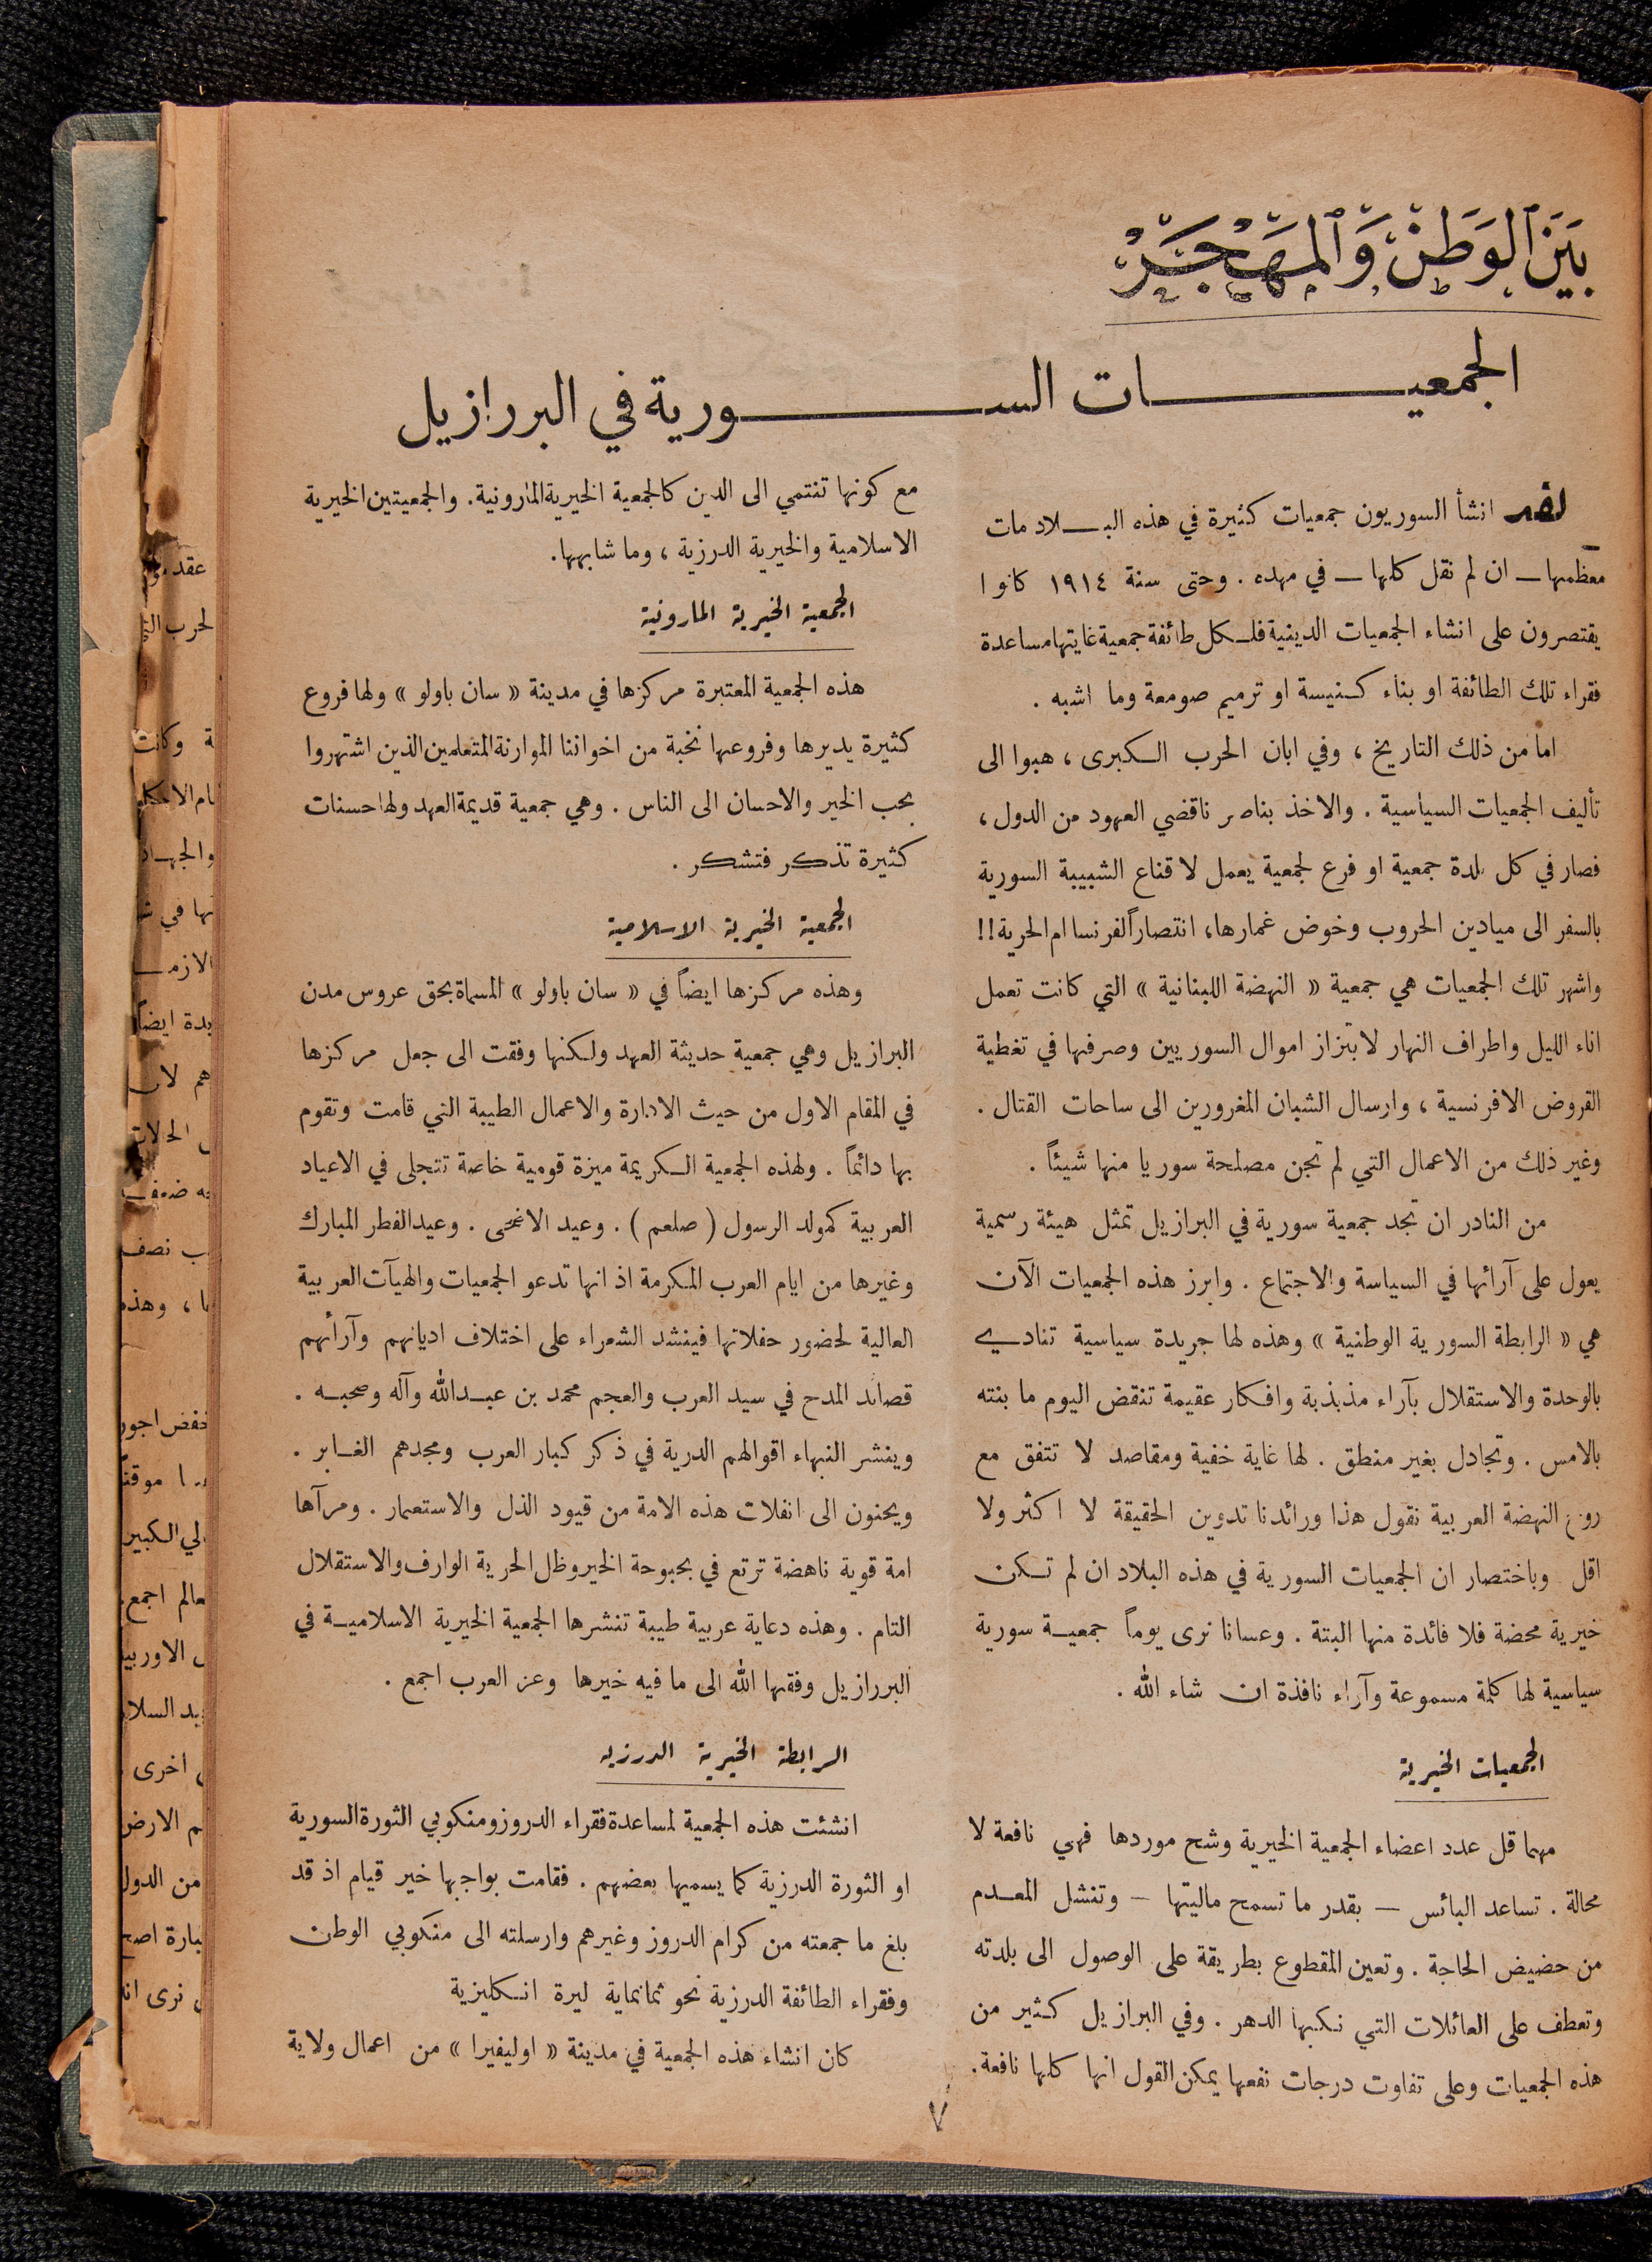 بَيْنَ ٱلوَطَنْ وَٱلمَهْجَرْ
الجمعيات السورية في البررازيل
لقد انشأ السوريون جمعيات كثيرة في هذه البلاد مات
معظمها — ان لم نقل كلها — في مهده . وحتى سنة ١٩١٤ كانوا
يقتصرون على انشاء الجمعيات الدينية فلكل طائفة جمعية غايتها مساعدة
فقراء تلك الطائفة او بناء كنيسة او ترميم صومعة وما اشبه .
اما من ذلك التاريخ ، وفي ابان الحرب الكبرى ، هبوا الى
تأليف الجمعيات السياسية . والاخذ بناصر ناقضي العهود من الدول ،
فصار في كل بلدة جمعية او فرع لجمعية يعمل لاقناع الشبيبة السورية
بالسفر الى ميادين الحروب وخوض غمارها ، انتصاراً لفرنسا ام الحرية !!
واشهر تلك الجمعيات هي جمعية « النهضة اللبنانية » التي كانت تعمل
اناء الليل واطراف النهار لابتزاز اموال السوريين وصرفها في تغطية
القروض الافرنسية ، وارسال الشبان المغرورين الى ساحات القتال .
وغير ذلك من الاعمال التي لم تجن مصلحة سوريا منها شيئاً .
من النادر ان تجد جمعية سورية في البرازيل تمثل هيئة رسمية
يعول على آرائها في السياسة والاجتماع . وابرز هذه الجمعيات الآن
هي « الرابطة السورية الوطنية » وهذه لها جريدة سياسية تنادي
بالوحدة والاستقلال بآراء مذبذبة وافكار عقيمة تنقض اليوم ما بنته
بالامس . وتجادل بغير منطق . لها غاية خفية ومقاصد لا تتفق مع
روح النهضة العربية نقول هذا ورائدنا تدوين الحقيقة لا اكثر ولا
اقل وباختصار ان الجمعيات السورية في هذه البلاد ان لم تكن
خيرية محضة فلا فائدة منها البتة . وعسانا نرى يوماً جمعية سورية
سياسية لها كلمة مسموعة وآراء نافذة ان شاء الله .
الجمعيات الخيرية
مهما قل عدد اعضاء الجمعية الخيرية وشح موردها فهي نافعة لا
محالة . تساعد البائس — بقدر ما تسمح ماليتها — وتنشل المعدم
من حضيض الحاجة . وتعين المقطوع بطريقة على الوصول الى بلدته
وتعطف على العائلات التي نكبها الدهر . وفي البرازيل كثير من
هذه الجمعيات وعلى تفاوت درجات نفعها يمكن القول انها كلها نافعة .
مع كونها تنتمي الى الدين كالجمعية الخيرية المارونية . والجمعيتين الخيرية
الاسلامية والخيرية الدرزية ، وما شابهها .
الجمعية الخيرية المارونية
هذه الجمعية المعتبرة مركزها في مدينة « سان باولو » ولها فروع
كثيرة يديرها وفروعها نخبة من اخواننا الموارنة المتعلمين الذين اشتهروا
بحب الخير والاحسان الى الناس . وهي جمعية قديمة العهد ولها حسنات
كثيرة تذكر فتشكر .
الجمعية الخيرية الاسلامية
وهذه مركزها ايضاً في « سان باولو » المسماة بحق عروس مدن
البرازيل وهي جمعية حديثة العهد ولكنها وفقت الى جعل مركزها
في المقام الاول من حيث الادارة والاعمال الطيبة التي قامت وتقوم
بها دائماً . ولهذه الجمعية الكريمة ميزة قومية خاصة تتجلى في الاعياد
العربية كمولد الرسول ( صلعم ) . وعيد الاضحى . وعيد الفطر المبارك
وغيرها من ايام العرب المكرمة اذ انها تدعو الجمعيات والهيآت العربية
العالية لحضور حفلاتها فينشد الشعراء على اختلاف اديانهم وآرأئهم
قصائد المدح في سيد العرب والعجم محمد بن عبدالله وآله وصحبه .
وينشر النبهاء اقوالهم الدرية في ذكر كبار العرب ومجدهم الغابر .
ويحنون الى انفلات هذه الامة من قيود الذل والاستعمار . ومرآها
امة قوية ناهضة ترتع في بحبوحة الخير وظل الحرية الوارف والاستقلال
التام . وهذه دعاية عربية طيبة تنشرها الجمعية الخيرية الاسلامية في
البررازيل وفقها الله الى ما فيه خيرها وعز العرب اجمع .
الرابطة الخيرية الدرزيه
انشئت هذه الجمعية لمساعدة فقراء الدروز ومنكوبي الثورة السورية
او الثورة الدرزية كما يسميها بعضهم . فقامت بواجبها خير قيام اذ قد
بلغ ما جمعته من كرام الدروز وغيرهم وارسلته الى منكوبي الوطن
وفقراء الطائفة الدرزية نحو ثمانماية ليرة انكليزية
كان انشاء هذه الجمعية في مدينة « اوليفيرا » من اعمال ولاية
٧
عقد
وكانت
والجهاد
ايضاً
نصف
، وهذه
موقتاً
الكبير
اجمع
السلا
اخرى
الارض
من الدول
نرى